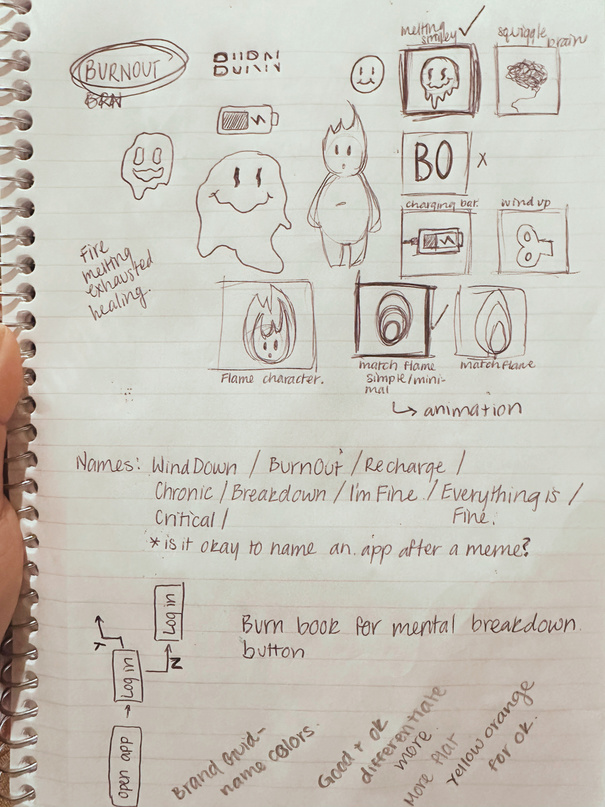 BURNOUT
BRN
BURN
melting
smiley
squiggle
brain
BO
x
charging bar.
wind up
Fire
melting
exhausted
healing.
Flame character.
match flame
simple/mini-
mal
matchflame
animation
Names: WindDown / BurnOut / Recharge /
Chronic / Breakdown / I'm Fine / Everything is /
Critical / Fine.
*is it okay to name an app after a meme?
Burn book for mental breakdown
button
Log in
N
Y
Log in
open app
Brand Guid-
name colors.
Good + ok
differentiate
more.
More flat
yellow orange
for ok.